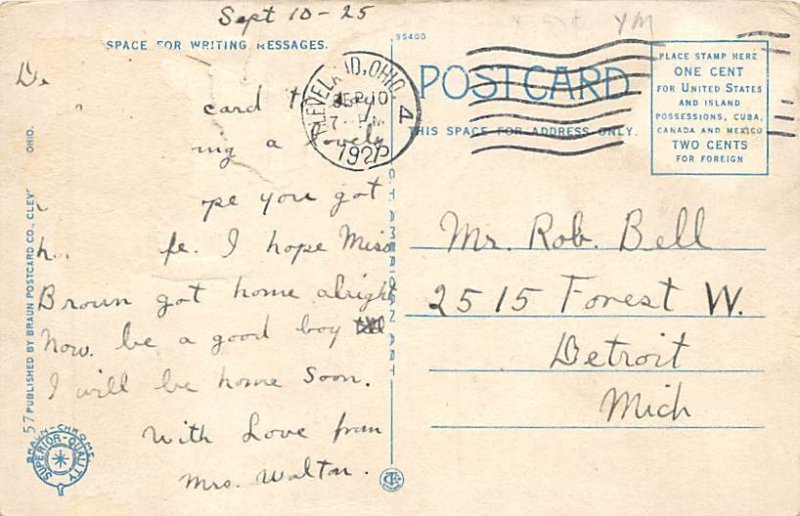 Sept 10-25
95400
SPACE FOR WRITING MESSAGES.
POSTCARD
THIS SPACE FOR ADDRESS ONLY.
PLACE STAMP HERE
ONE CENT
FOR UNITED STATES
AND ISLAND
POSSESSIONS, CUBA,
CANADA AND MEXICO
TWO CENTS
FOR FOREIGN
CLEVELAND, OHIO.
SEP 10
7 PM
192
4
De
card
ing a lovely
pe you got
h fe. I hope Miss
Brown got home alright
Now. be a good boy
I will be home soon.
With Love from
Mrs. Walton.
Mr. Rob. Bell
2515 Forest W.
Detroit
Mich
57 PUBLISHED BY BRAUN POSTCARD CO., CLEV OHIO.
BRAUN-CHROME
SUPERIOR-QUALITY